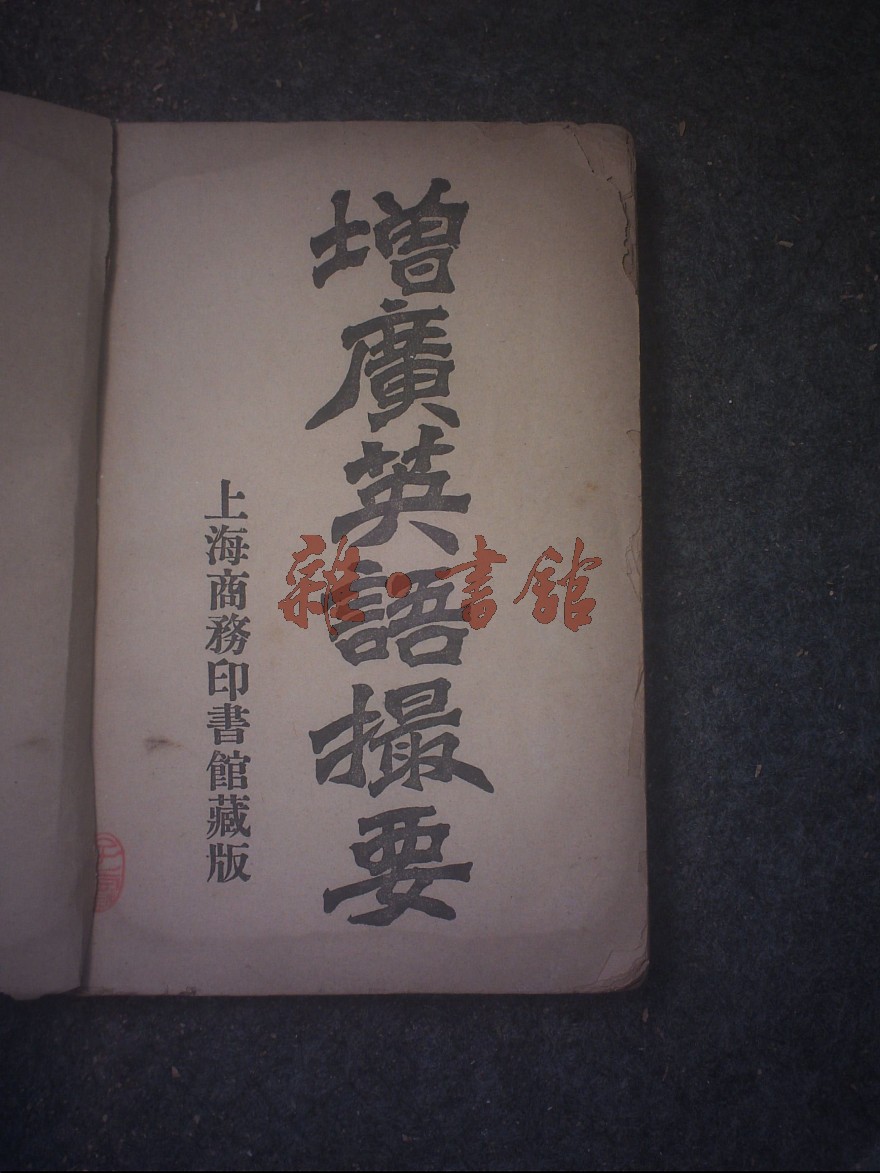 增廣英語撮要
上海商務印書館藏版
雜·書館